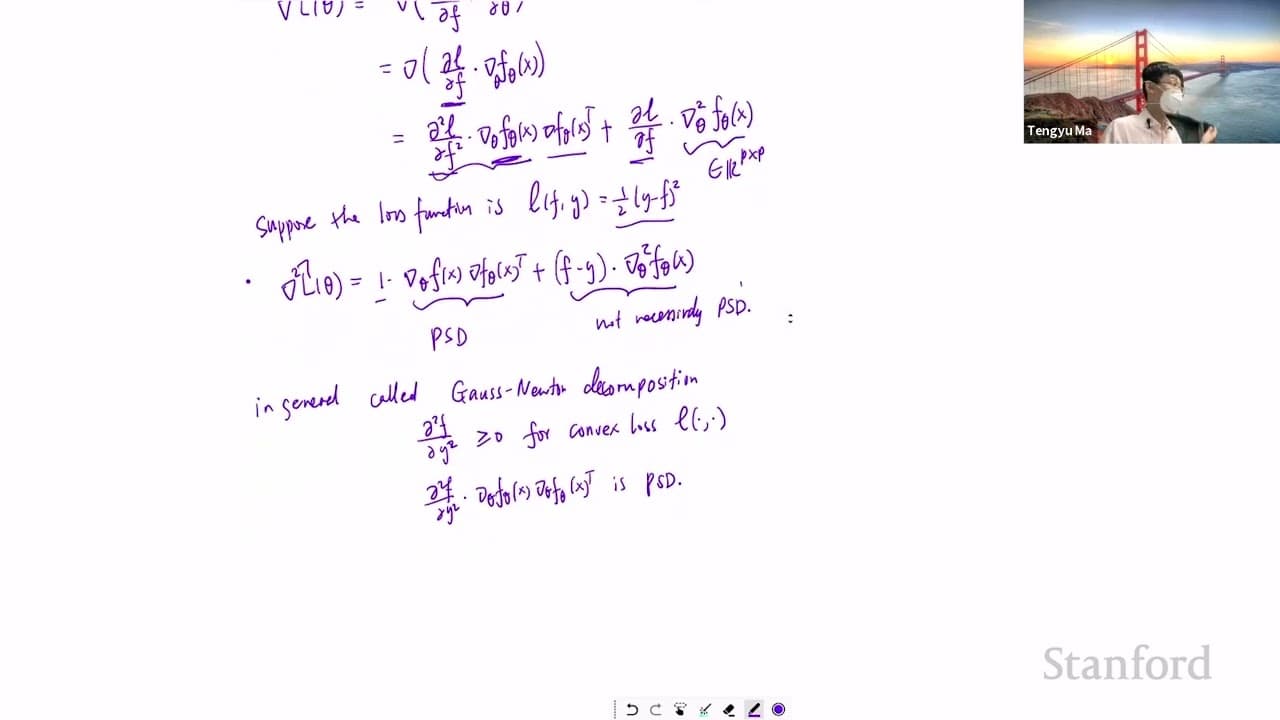 ∇²L(θ) = ∇(∂l/∂f · ∂θ)
= ∇(∂l/∂f · ∇θfθ(x))
= ∂²l/∂f² · ∇θfθ(x) ∇fθ(x)ᵀ + ∂l/∂f · ∇²θ fθ(x)
∈ ℝᵖˣᵖ
Suppose the loss function is l(f, y) = ½(y-f)²
· ∇²L̂(θ) = 1 · ∇θf(x) ∇fθ(x)ᵀ + (f-y) · ∇²θfθ(x)
PSD
not necessirdy PSD.
in general called Gauss-Newton decomposition
∂²f/∂y² ≥0 for convex loss l(·,·)
∂²f/∂y² · ∇θfθ(x) ∇θfθ(x)ᵀ is PSD.
Tengyu Ma
Stanford